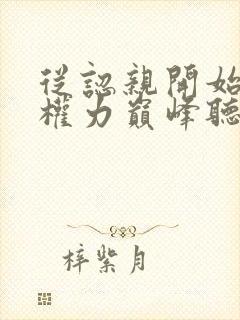 從認親開始
權力巔峰聽
梓紫月